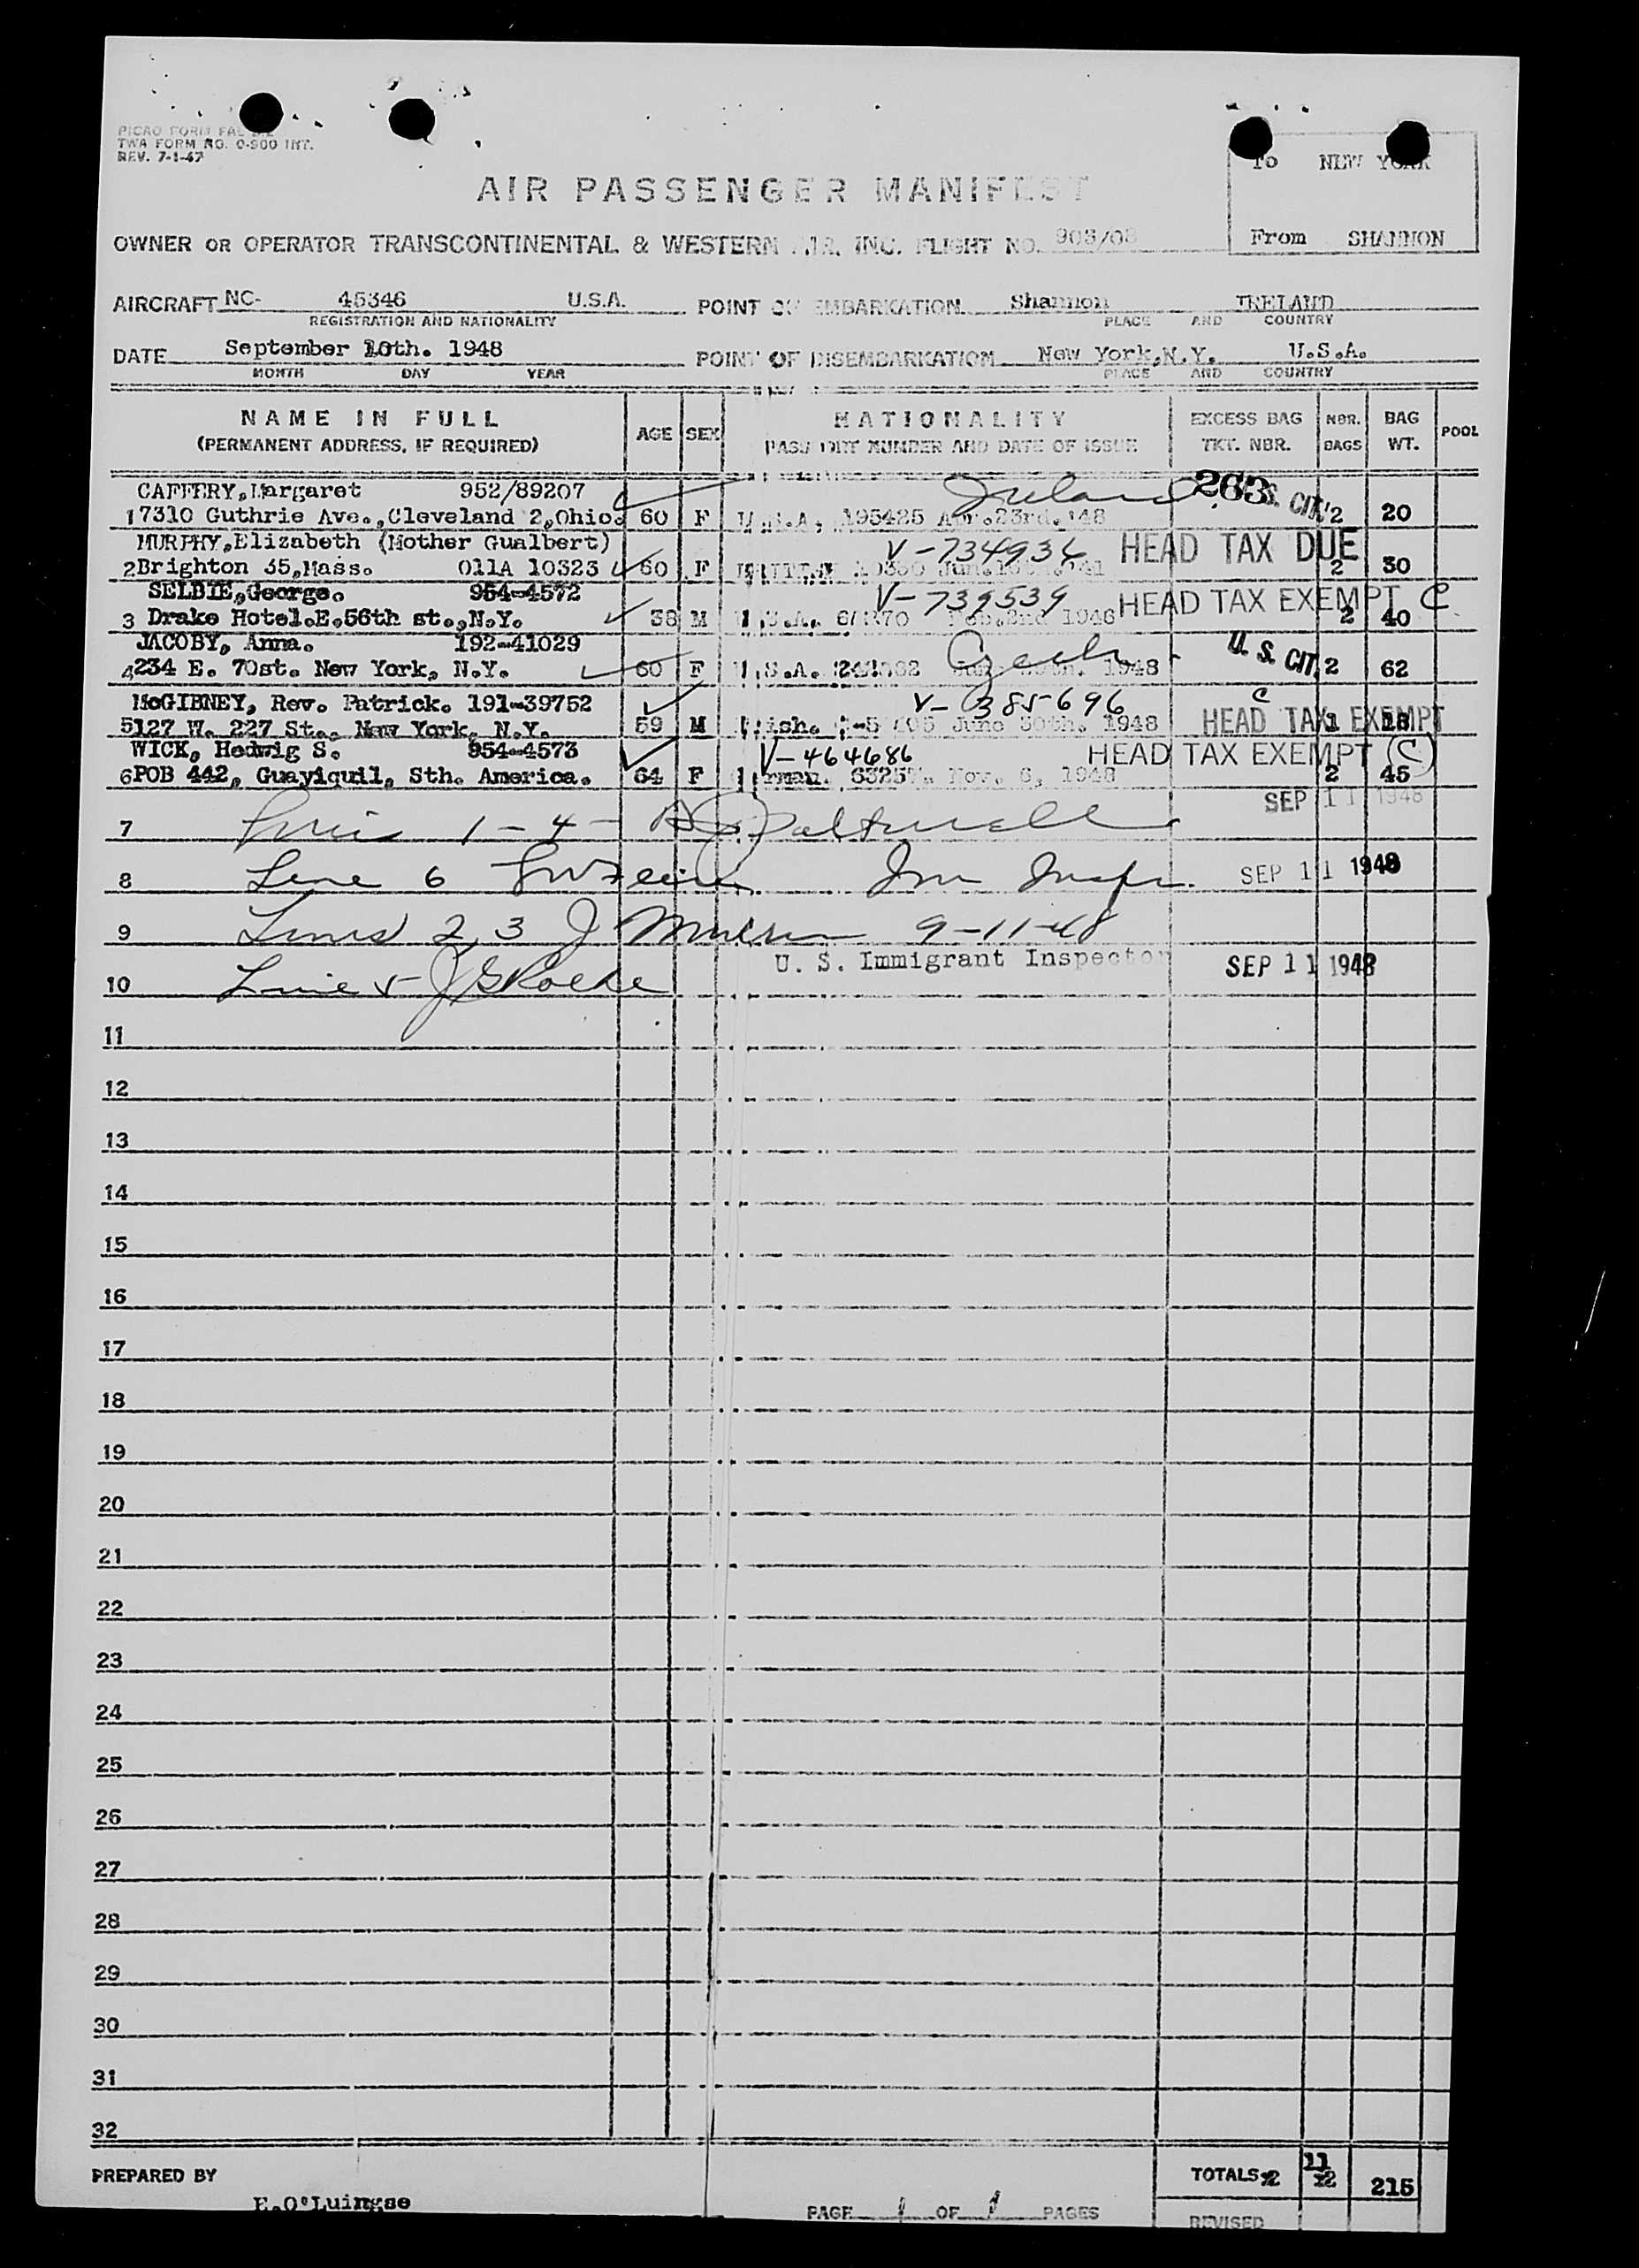 PICAO FORM FAL
TWA FORM NO. 0-900 INT.
REV. 7-1-47
To NEW YORK
AIR PASSENGER MANIFEST
OWNER OR OPERATOR TRANSCONTINENTAL & WESTERN AIR, INC. FLIGHT NO.
From SHANNON
AIRCRAFT NC- 45346 U.S.A. POINT OF EMBARKATION Shannon IRELAND
REGISTRATION AND NATIONALITY PLACE AND COUNTRY
DATE September 10th. 1948 POINT OF DISEMBARKATION New York,N.Y. U.S.A.
MONTH DAY YEAR PLACE AND COUNTRY
NAME IN FULL AGE SEX NATIONALITY EXCESS BAG NBR. BAG POOL
(PERMANENT ADDRESS, IF REQUIRED) PASSPORT NUMBER AND DATE OF ISSUE TKT. NBR. BAGS WT.
CAFFERY,Margaret 952/89207 Ireland 263 U.S. CIT.
1 7310 Guthrie Ave.,Cleveland 2,Ohio. 60 F U.S.A. 195425 Apr.23rd.'48 2 20
MURPHY,Elizabeth (Mother Gualbert) V-734936 HEAD TAX DUE
2 Brighton 35,Mass. 011A 10323 60 F 2 30
SELBIE,George. 954-4572 V-739539 HEAD TAX EXEMPT C
3 Drake Hotel.E.56th st.,N.Y. 38 M Feb.2nd 1946 2 40
JACOBY, Anna. 192-41029 Czech U. S. CIT.
4 234 E. 70st. New York, N.Y. 60 F U.S.A. 1948 2 62
McGIBNEY, Rev. Patrick. 191-39752 V-385696 C
5 127 W. 227 St., New York, N.Y. 59 M Irish. June 30th. 1948 HEAD TAX EXEMPT 1 18
WICK, Hedwig S. 954-4573 V-464686 HEAD TAX EXEMPT (C)
6 POB 442, Guayiquil, Sth. America. 64 F German. Nov. 6, 1948 2 45
SEP 11 1948
7 1-4-
8 Line 6 Imm Inspr. SEP 11 1948
9 Lines 2, 3 J 9-11-48
U. S. Immigrant Inspector SEP 11 1948
10 Line 5
11
12
13
14
15
16
17
18
19
20
21
22
23
24
25
26
27
28
29
30
31
32
PREPARED BY TOTALS 11 215
E.O'Luingse
PAGE 1 OF 1 PAGES REVISED